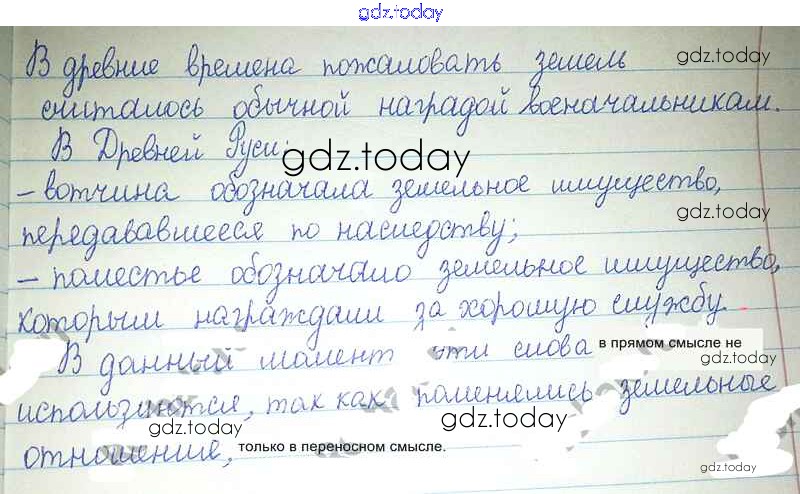 gdz.today
В древние времена пожаловать земель
gdz.today
считалось обычной наградой военачальникам.
В Древней Руси:
gdz.today
– вотчина обозначала земельное имущество,
gdz.today
передававшееся по наследству;
– поместье обозначало земельное имущество,
которым награждали за хорошую службу.
В данный момент эти слова в прямом смысле не
gdz.today
используются, так как поменялись земельные
gdz.today
gdz.today
отношение, только в переносном смысле.
gdz.today